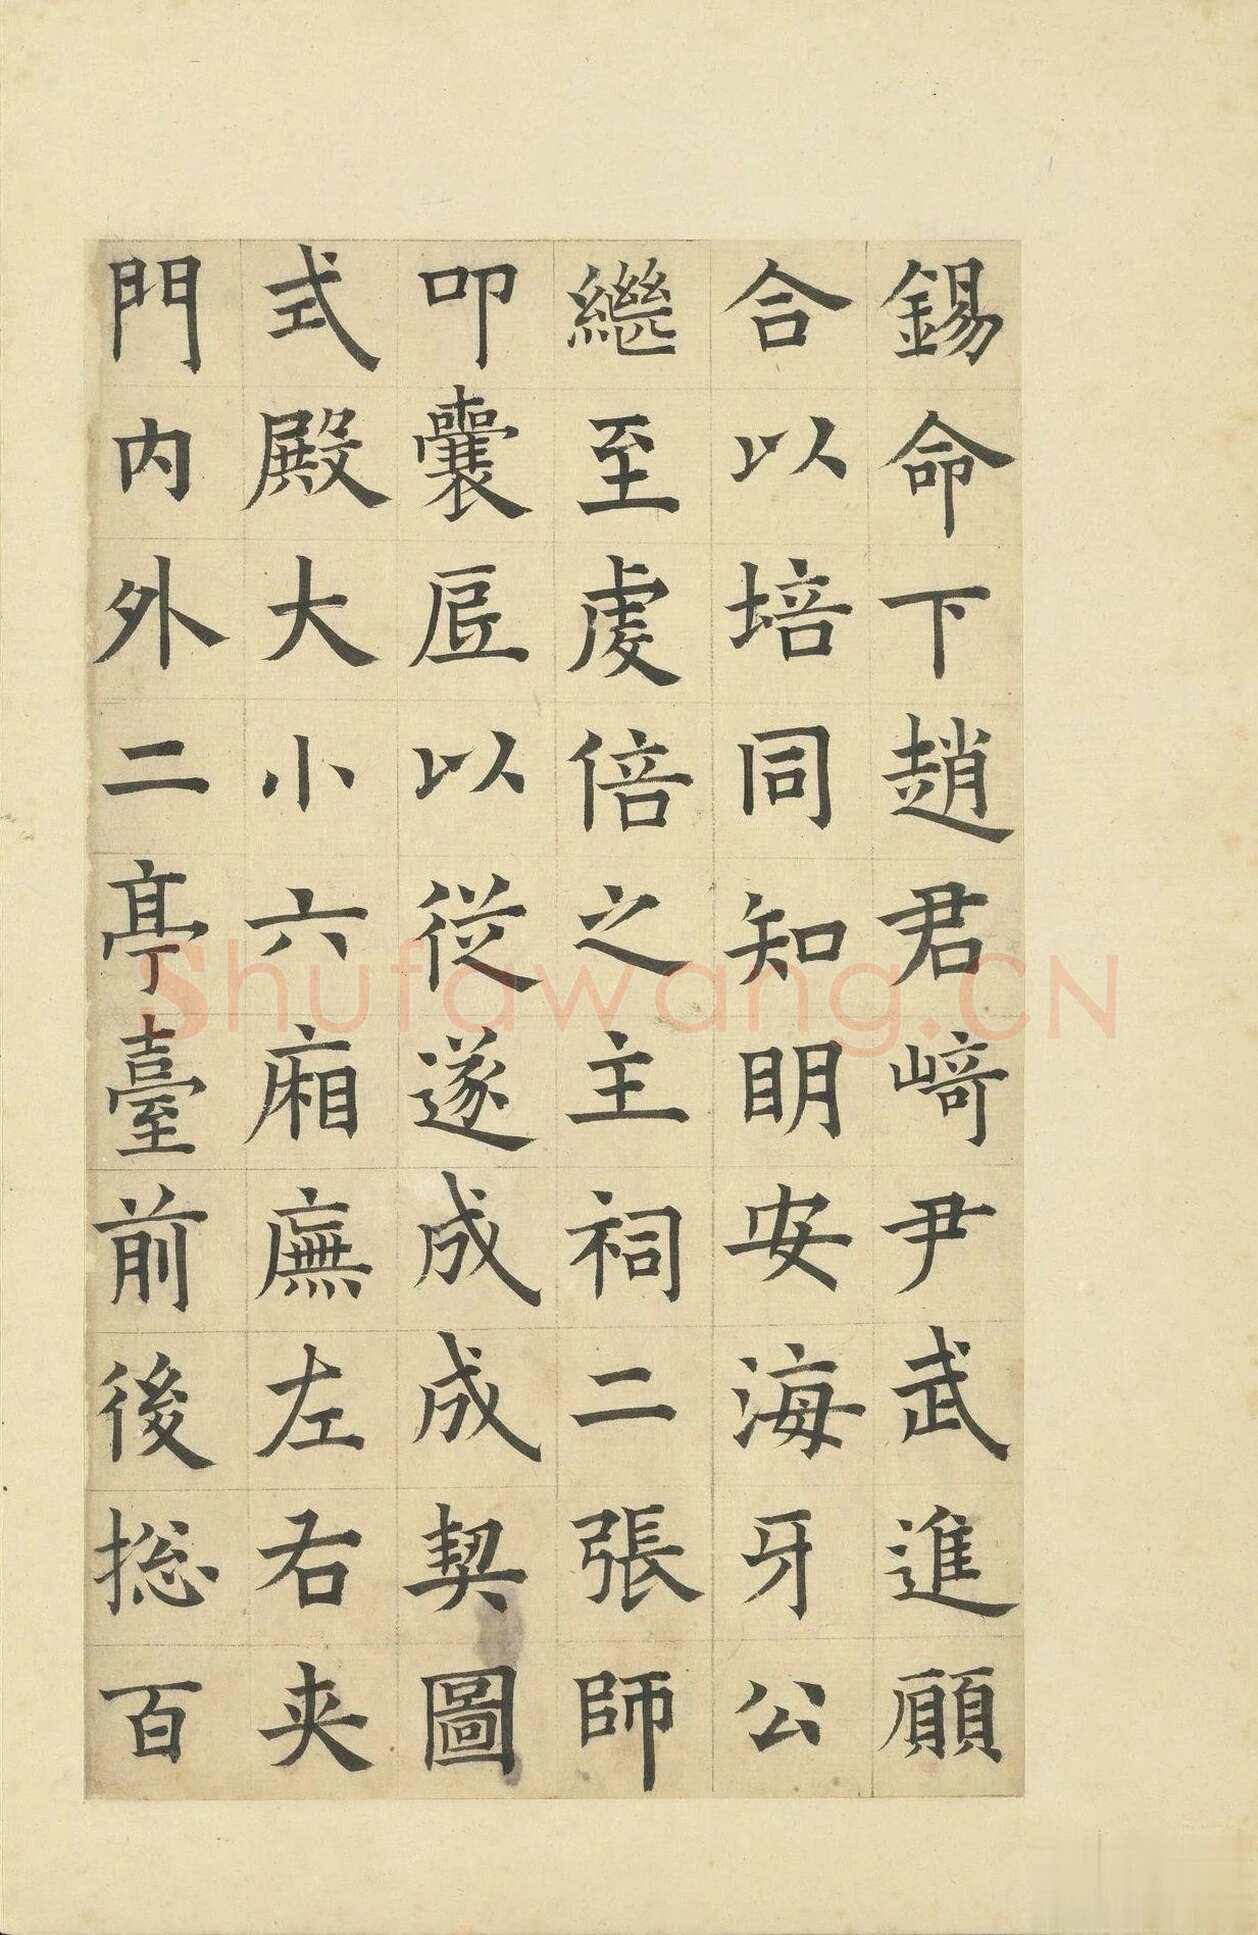 錫命下趙君﨑尹武進願
合以培同知眀安海牙公
繼至虔倍之主祠二張師
叩囊底以從遂成成契圖
式殿大小六廂廡左右夾
門内外二亭臺前後捴百
Shufawang.CN